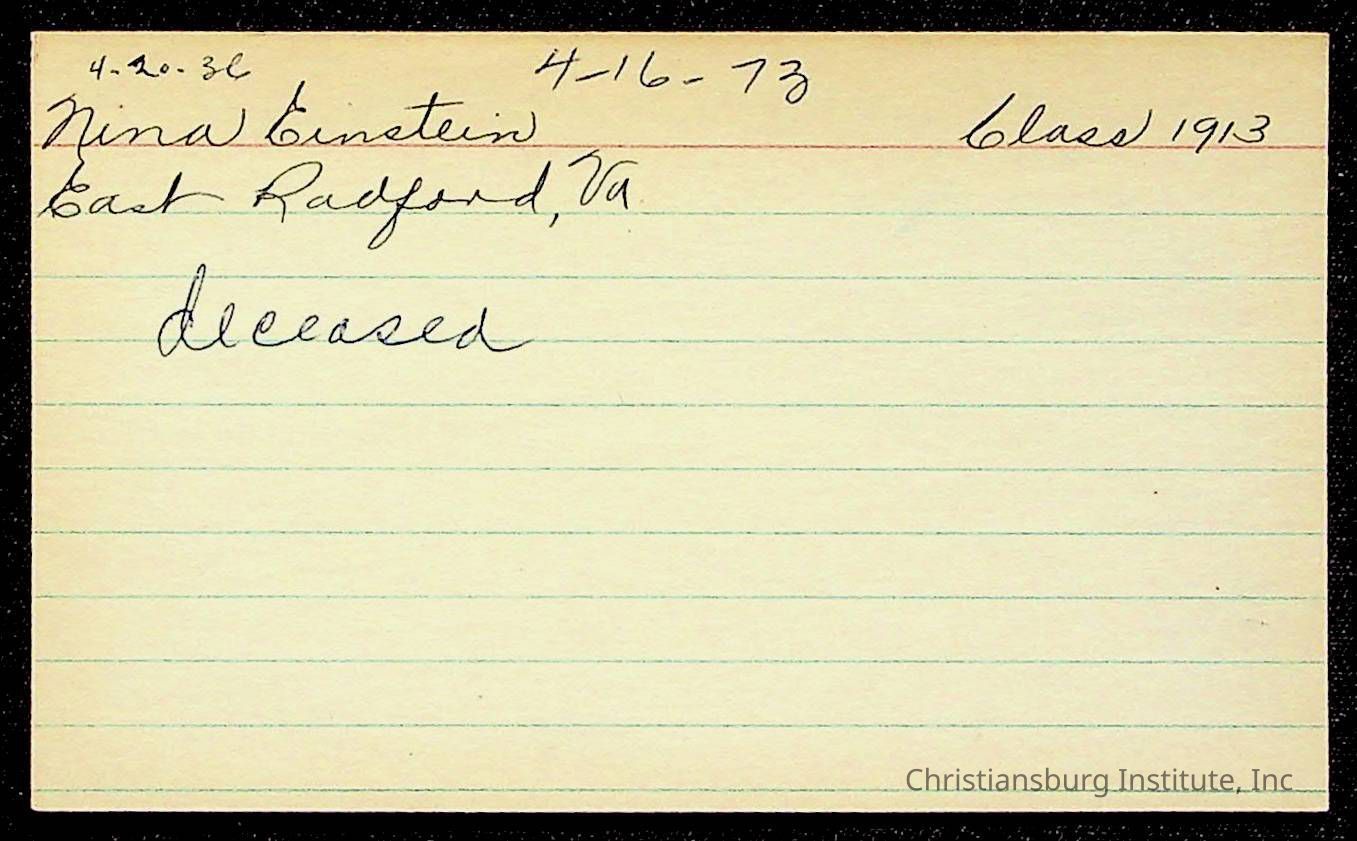 4-20-36 4-16-73
Nina Einstein Class 1913
East Radford, Va
deceased
Christiansburg Institute, Inc